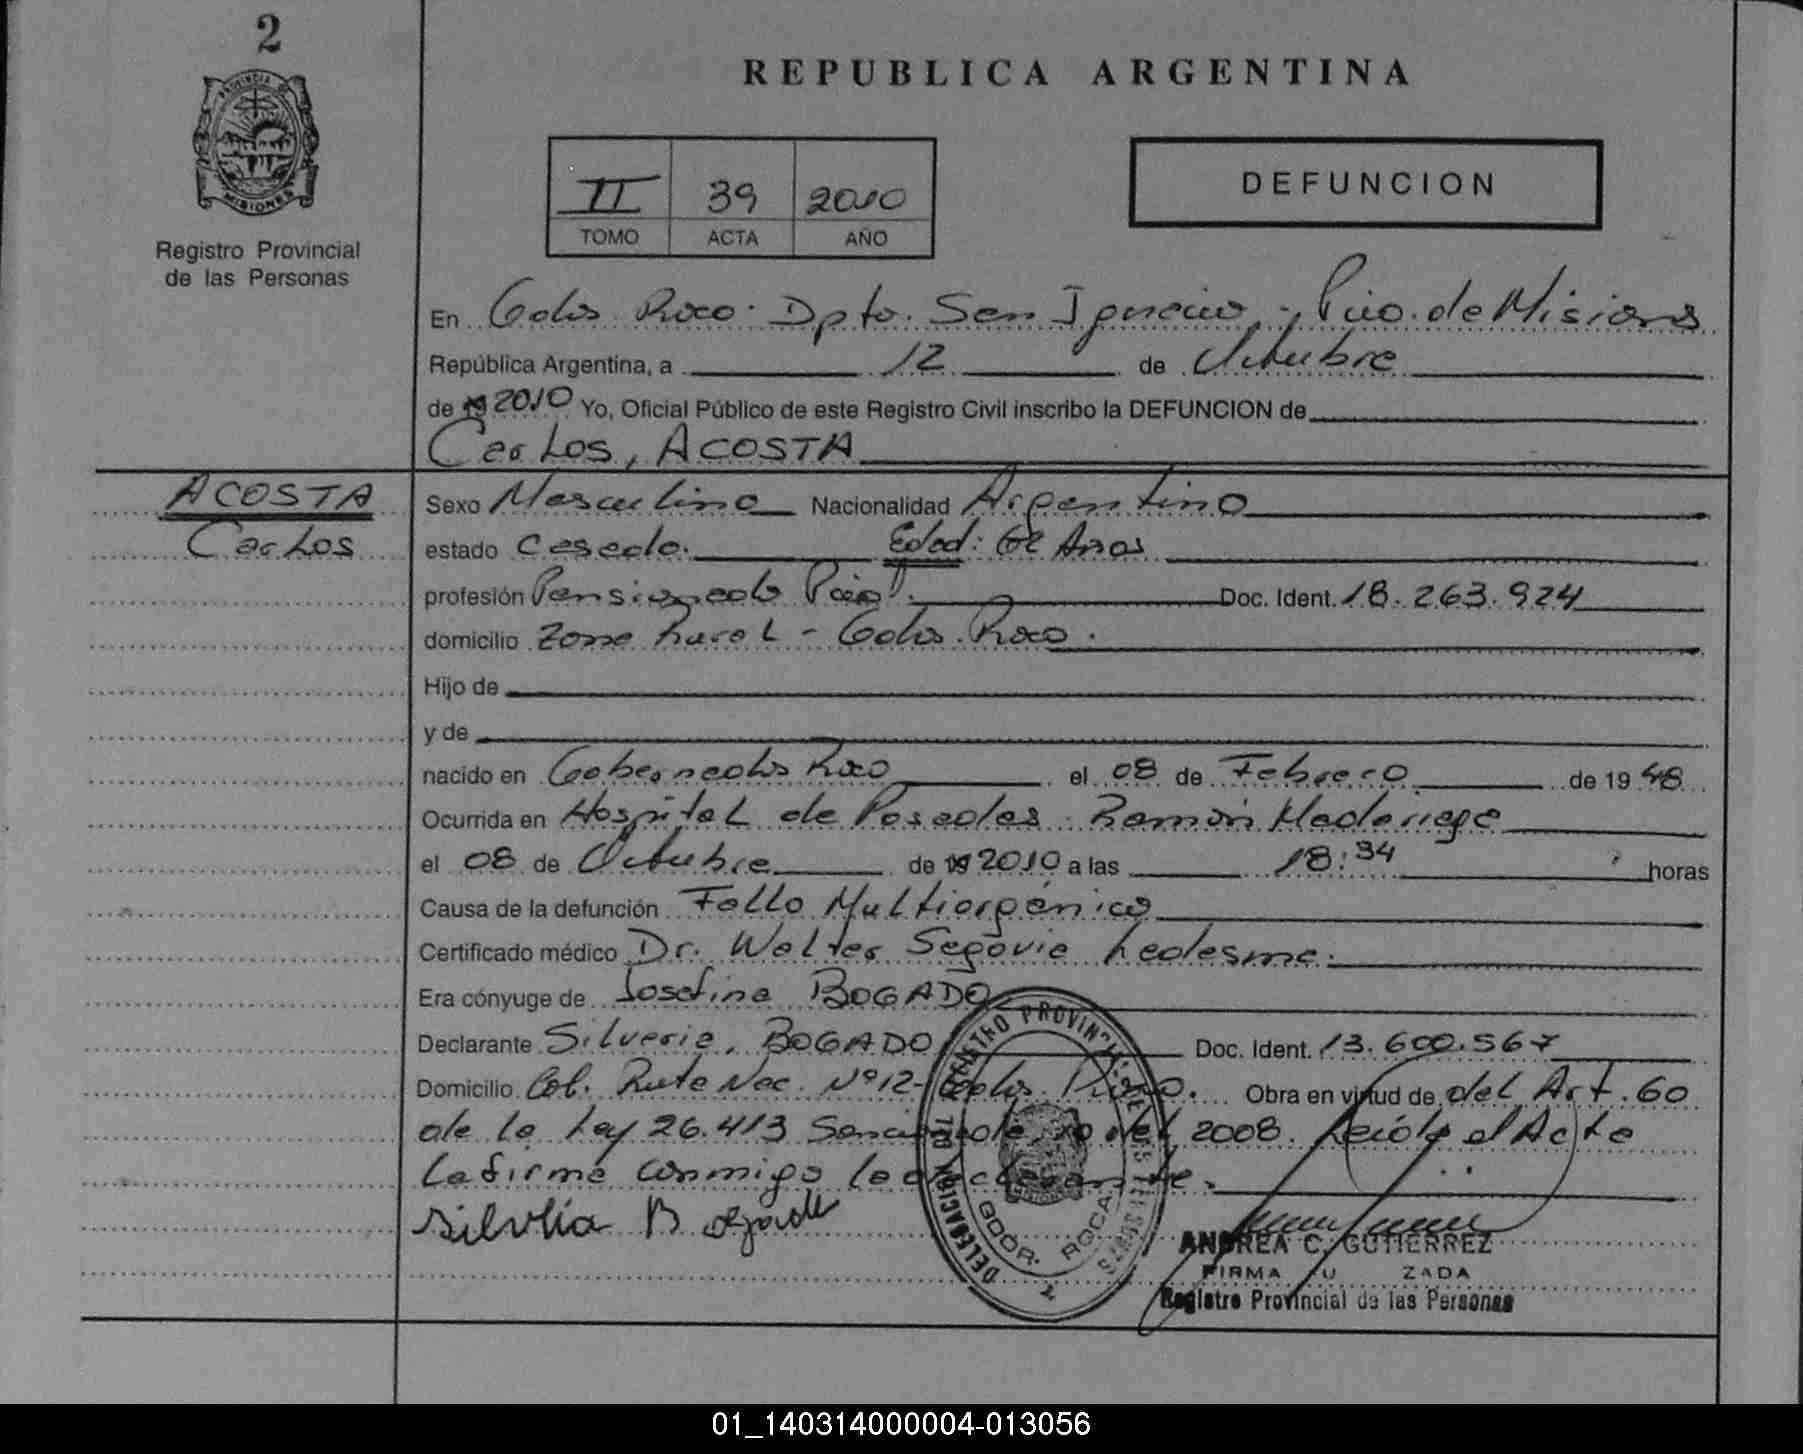 2
PROVINCIA DE
MISIONES
Registro Provincial
de las Personas
REPUBLICA ARGENTINA
II 39 2010
TOMO ACTA AÑO
DEFUNCION
En Gdor. Roca. Dpto. San Ignacio - Pcia. de Misiones
República Argentina, a 12 de Octubre
de 19 2010 Yo, Oficial Público de este Registro Civil inscribo la DEFUNCION de
Carlos, ACOSTA
ACOSTA
Carlos
Sexo Masculino Nacionalidad Argentino
estado Casado. Edad: 62 Años
profesión Pensionado Pcial. Doc. Ident. 18.263.924
domicilio Zona Rural - Gdor. Roca.
Hijo de
y de
nacido en Gobernador Roca el 08 de Febrero de 1948
Ocurrida en Hospital de Posadas Ramón Madariaga
el 08 de Octubre de 19 2010 a las 18:34 horas
Causa de la defunción Fallo Multiorgánico
Certificado médico Dr. Walter Segovia Ledesma.
Era cónyuge de Josefina BOGADO
Declarante Silveria, BOGADO Doc. Ident. 13.600.567
Domicilio Col. Ruta Nac. Nº 12 - Gdor. Roca. Obra en virtud de del Art. 60
de la Ley 26.413 Sancionada del 2008. Leída el Acta
La firma conmigo la declarante.
Silvlia B
DELEGACION DEL REGISTRO PROVINCIAL DE LAS PERSONAS
GDOR. ROCA
ANDREA C. GUTIERREZ
FIRMA U ZADA
Registro Provincial de las Personas
01_140314000004-013056